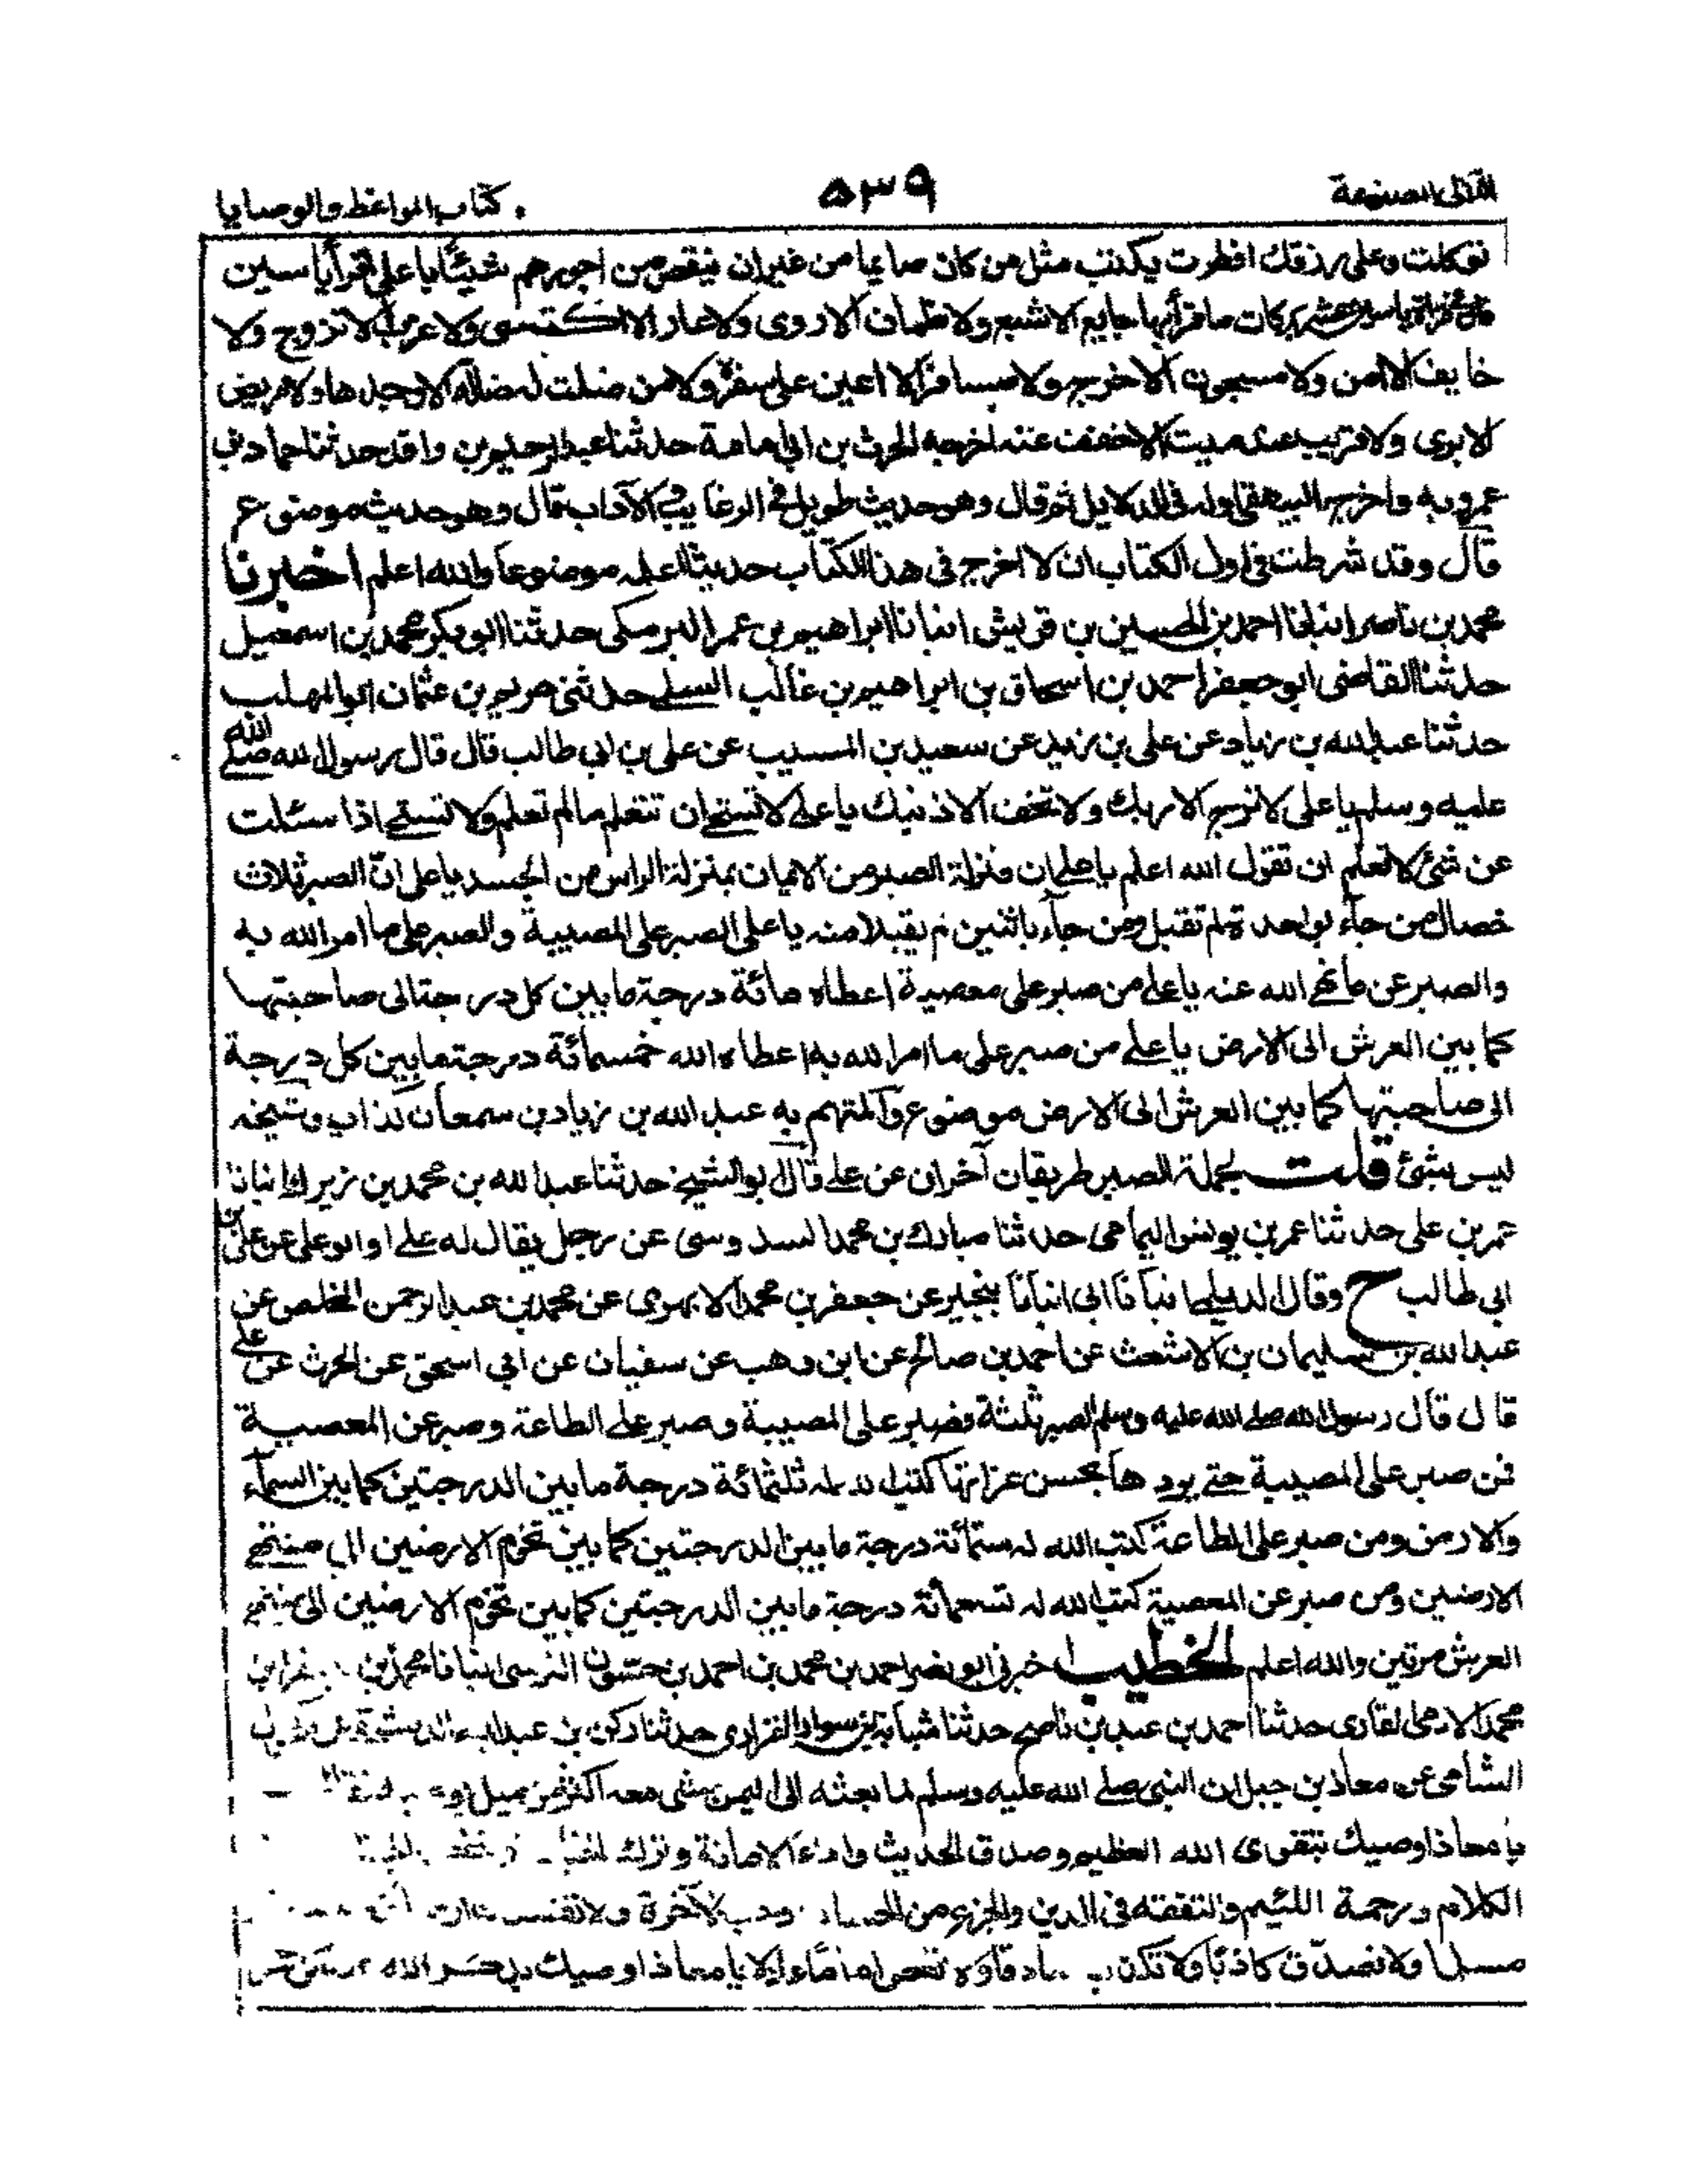 اللآلى المصنوعة ٥٣٩ كتاب المواعظ والوصايا
توكلت وعلى رزقك افطرت يكتب مثل من كان صايما من غيران ينقص من اجورهم شيئا يا على اقرأ ياسين
فان فى قراة ياسين عشر بركات ما قرأها جايع الا شبع ولا ظمان الا روى ولا عار الا اكتسى ولا عزب الا تزوج ولا
خايف الا امن ولا مسجون الا خرج ولا مسافر الا اعين على سفره ولا من ضلت له ضالة الا وجدها ولا مريض
الا برى ولا قريب عند ميت الا خفف عنه اخرجه الحرث بن ابى اسامة حدثنا عبد الرحيم بن واقد حدثنا حماد بن
عمرو به واخرج البيهقى اوله فى الدلايل ثم قال وهو حديث طويل فى الرغايب والآداب قال وهو حديث موضوع
قال وقد شرطت فى اول الكتاب ان لا اخرج فى هذا الكتاب حديثا اعلمه موضوعا والله اعلم اخبرنا
محمد بن ناصر انبانا احمد بن الحسين بن قريش انبانا ابراهيم بن عمر البرمكى حدثنا ابو بكر محمد بن اسمعيل
حدثنا القاضى ابو جعفر احمد بن اسحاق بن ابراهيم بن غالب السلمى حدثنى مريم بن عثمان ابو المهلب
حدثنا عبد الله بن زياد عن على بن زيد عن سعيد بن المسيب عن على بن ابى طالب قال قال رسول الله صلى الله
عليه وسلم يا على لا ترج الا ربك ولا تخف الا ذنبك يا على لا تستحى ان تتعلم مالم تعلم ولا تستحى اذا سئلت
عن شئ لا تعلم ان تقول الله اعلم يا على ان منزلة الصبر من الايمان بمنزلة الراس من الجسد يا على انّ الصبر ثلاث
خصال من جآء بواحدة لم تقبل ومن جآء باثنين لم يقبلا منه يا على الصبر على المصيبة والصبر على ما امر الله به
والصبر عن ما نهى الله عنه يا على من صبر على معصية اعطاه مائة درجة ما بين كل درجة الى صاحبتها
كما بين العرش الى الارض يا على من صبر على ما امر الله به اعطاه الله خمسمائة درجة ما بين كل درجة
الى صاحبتها كما بين العرش الى الارض موضوع والمتهم به عبد الله بن زياد بن سمعان كذاب وشيخه
ليس بشئ قلت لجملة الصبر طريقان آخران عن على قال ابو الشيخ حدثنا عبد الله بن محمد بن زيرك انبانا
عمر بن على حدثنا عمر بن يونس اليمامى حدثنا مبارك بن محمد السدوسى عن رجل يقال له على او ابو على عن على بن
ابى طالب ح وقال الديلمى انبانا ابى انبانا بنجير عن جعفر بن محمد الابهرى عن محمد بن عبد الرحمن المخلص عن
عبد الله بن سليمان بن الاشعث عن احمد بن صالح عن ابن وهب عن سفيان عن ابى اسحق عن الحرث عن على
قال قال رسول الله صلى الله عليه وسلم الصبر ثلثة فصبر على المصيبة وصبر على الطاعة وصبر عن المعصية
فمن صبر على المصيبة حتى يردها بحسن عزائها كتب الله له ثلثمائة درجة ما بين الدرجتين كما بين السمآء
والارض ومن صبر على الطاعة كتب الله له ستمائة درجة ما بين الدرجتين كما بين تخوم الارضين الى منتهى
الارضين ومن صبر عن المعصية كتب الله له تسعمائة درجة ما بين الدرجتين كما بين تخوم الارضين الى منتهى
العرش مرتين والله اعلم الخطيب اخبرنى ابو نصر احمد بن محمد بن احمد بن حسنون النرسى انبانا محمد بن
محمد الادمى القارى حدثنا احمد بن عبيد بن ناصح حدثنا شبابة بن سوار الفزارى حدثنا ركن بن عبد الله الدمشقى عن مكحول
الشامى عن معاذ بن جبل ان النبى صلى الله عليه وسلم لما بعثه الى اليمن مشى معه اكثر من ميل
يا معاذ اوصيك بتقوى الله العظيم وصدق الحديث واداء الامانة وترك
الكلام ورحمة اليتيم والتفقه فى الدين والجزع من الحساب وحب الآخرة ولا تفسد
مسلما ولا تصدّق كاذبا ولا تكذب صادقا ولا تعص اماما عادلا يا معاذ اوصيك بذكر الله